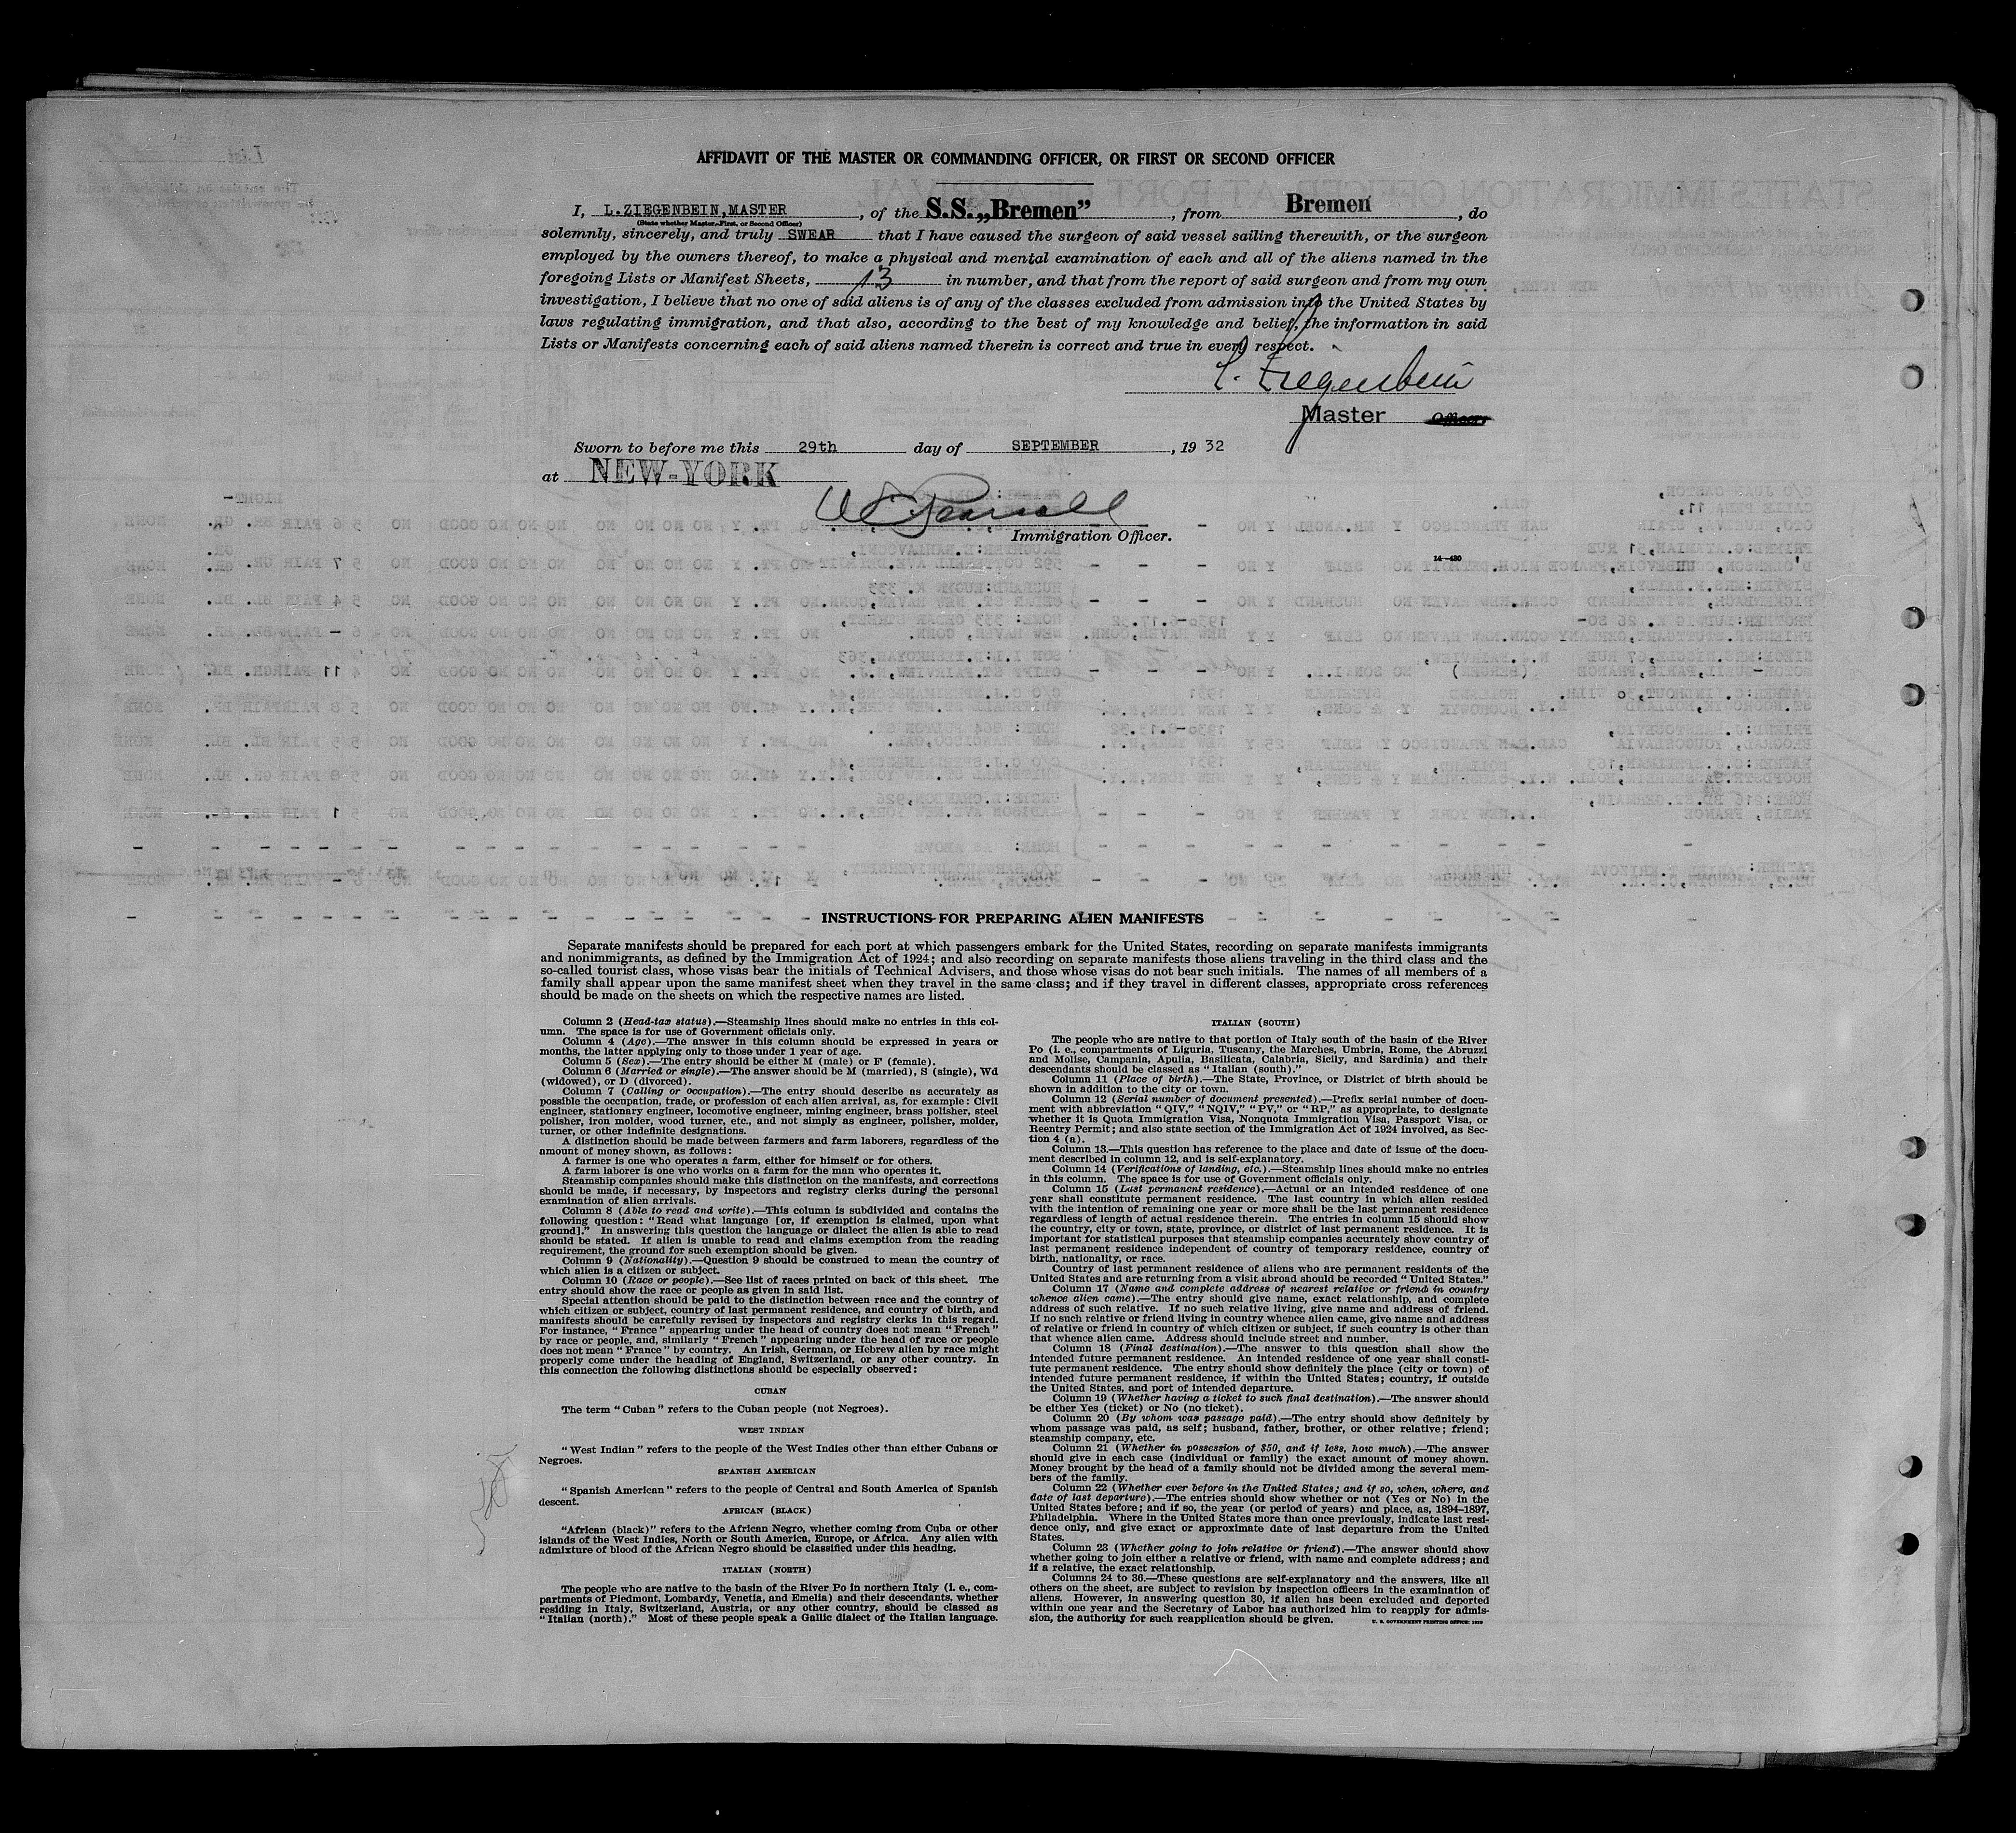 AFFIDAVIT OF THE MASTER OR COMMANDING OFFICER, OR FIRST OR SECOND OFFICER
I, L.ZIEGENBEIN,MASTER, of the S.S. „Bremen”, from Bremen, do
(State whether Master, First, or Second Officer)
solemnly, sincerely, and truly SWEAR that I have caused the surgeon of said vessel sailing therewith, or the surgeon
employed by the owners thereof, to make a physical and mental examination of each and all of the aliens named in the
foregoing Lists or Manifest Sheets, 13 in number, and that from the report of said surgeon and from my own
investigation, I believe that no one of said aliens is of any of the classes excluded from admission into the United States by
laws regulating immigration, and that also, according to the best of my knowledge and belief, the information in said
Lists or Manifests concerning each of said aliens named therein is correct and true in every respect.
L. Ziegenbein
Master Officer
Sworn to before me this 29th day of SEPTEMBER, 1932
at NEW-YORK
Immigration Officer.
14—480
INSTRUCTIONS FOR PREPARING ALIEN MANIFESTS
Separate manifests should be prepared for each port at which passengers embark for the United States, recording on separate manifests immigrants
and nonimmigrants, as defined by the Immigration Act of 1924; and also recording on separate manifests those aliens traveling in the third class and the
so-called tourist class, whose visas bear the initials of Technical Advisers, and those whose visas do not bear such initials. The names of all members of a
family shall appear upon the same manifest sheet when they travel in the same class; and if they travel in different classes, appropriate cross references
should be made on the sheets on which the respective names are listed.
Column 2 (Head-tax status).—Steamship lines should make no entries in this col-
umn. The space is for use of Government officials only.
Column 4 (Age).—The answer in this column should be expressed in years or
months, the latter applying only to those under 1 year of age.
Column 5 (Sex).—The entry should be either M (male) or F (female).
Column 6 (Married or single).—The answer should be M (married), S (single), Wd
(widowed), or D (divorced).
Column 7 (Calling or occupation).—The entry should describe as accurately as
possible the occupation, trade, or profession of each alien arrival, as, for example: Civil
engineer, stationary engineer, locomotive engineer, mining engineer, brass polisher, steel
polisher, iron molder, wood turner, etc., and not simply as engineer, polisher, molder,
turner, or other indefinite designations.
A distinction should be made between farmers and farm laborers, regardless of the
amount of money shown, as follows:
A farmer is one who operates a farm, either for himself or for others.
A farm laborer is one who works on a farm for the man who operates it.
Steamship companies should make this distinction on the manifests, and corrections
should be made, if necessary, by inspectors and registry clerks during the personal
examination of alien arrivals.
Column 8 (Able to read and write).—This column is subdivided and contains the
following question: “Read what language [or, if exemption is claimed, upon what
ground].” In answering this question the language or dialect the alien is able to read
should be stated. If alien is unable to read and claims exemption from the reading
requirement, the ground for such exemption should be given.
Column 9 (Nationality).—Question 9 should be construed to mean the country of
which alien is a citizen or subject.
Column 10 (Race or people).—See list of races printed on back of this sheet. The
entry should show the race or people as given in said list.
Special attention should be paid to the distinction between race and the country of
which citizen or subject, country of last permanent residence, and country of birth, and
manifests should be carefully revised by inspectors and registry clerks in this regard.
For instance, “France” appearing under the head of country does not mean “French”
by race or people, and, similarly “French” appearing under the head of race or people
does not mean “France” by country. An Irish, German, or Hebrew alien by race might
properly come under the heading of England, Switzerland, or any other country. In
this connection the following distinctions should be especially observed:
CUBAN
The term “Cuban” refers to the Cuban people (not Negroes).
WEST INDIAN
“West Indian” refers to the people of the West Indies other than either Cubans or
Negroes.
SPANISH AMERICAN
“Spanish American” refers to the people of Central and South America of Spanish
descent.
AFRICAN (BLACK)
“African (black)” refers to the African Negro, whether coming from Cuba or other
islands of the West Indies, North or South America, Europe, or Africa. Any alien with
admixture of blood of the African Negro should be classified under this heading.
ITALIAN (NORTH)
The people who are native to the basin of the River Po in northern Italy (i. e., com-
partments of Piedmont, Lombardy, Venetia, and Emelia) and their descendants, whether
residing in Italy, Switzerland, Austria, or any other country, should be classed as
“Italian (north).” Most of these people speak a Gallic dialect of the Italian language.
ITALIAN (SOUTH)
The people who are native to that portion of Italy south of the basin of the River
Po (i. e., compartments of Liguria, Tuscany, the Marches, Umbria, Rome, the Abruzzi
and Molise, Campania, Apulia, Basilicata, Calabria, Sicily, and Sardinia) and their
descendants should be classed as “Italian (south).”
Column 11 (Place of birth).—The State, Province, or District of birth should be
shown in addition to the city or town.
Column 12 (Serial number of document presented).—Prefix serial number of docu-
ment with abbreviation “QIV,” “NQIV,” “PV,” or “RP,” as appropriate, to designate
whether it is Quota Immigration Visa, Nonquota Immigration Visa, Passport Visa, or
Reentry Permit; and also state section of the Immigration Act of 1924 involved, as Sec-
tion 4 (a).
Column 13.—This question has reference to the place and date of issue of the docu-
ment described in column 12, and is self-explanatory.
Column 14 (Verifications of landing, etc.).—Steamship lines should make no entries
in this column. The space is for use of Government officials only.
Column 15 (Last permanent residence).—Actual or an intended residence of one
year shall constitute permanent residence. The last country in which alien resided
with the intention of remaining one year or more shall be the last permanent residence
regardless of length of actual residence therein. The entries in column 15 should show
the country, city or town, state, province, or district of last permanent residence. It is
important for statistical purposes that steamship companies accurately show country of
last permanent residence independent of country of temporary residence, country of
birth, nationality, or race.
Country of last permanent residence of aliens who are permanent residents of the
United States and are returning from a visit abroad should be recorded “United States.”
Column 17 (Name and complete address of nearest relative or friend in country
whence alien came).—The entry should give name, exact relationship, and complete
address of such relative. If no such relative living, give name and address of friend.
If no such relative or friend living in country whence alien came, give name and address
of relative or friend in country of which citizen or subject, if such country is other than
that whence alien came. Address should include street and number.
Column 18 (Final destination).—The answer to this question shall show the
intended future permanent residence. An intended residence of one year shall consti-
tute permanent residence. The entry should show definitely the place (city or town) of
intended future permanent residence, if within the United States; country, if outside
the United States, and port of intended departure.
Column 19 (Whether having a ticket to such final destination).—The answer should
be either Yes (ticket) or No (no ticket).
Column 20 (By whom was passage paid).—The entry should show definitely by
whom passage was paid, as self; husband, father, brother, or other relative; friend;
steamship company, etc.
Column 21 (Whether in possession of $50, and if less, how much).—The answer
should give in each case (individual or family) the exact amount of money shown.
Money brought by the head of a family should not be divided among the several mem-
bers of the family.
Column 22 (Whether ever before in the United States; and if so, when, where, and
date of last departure).—The entries should show whether or not (Yes or No) in the
United States before; and if so, the year (or period of years) and place, as, 1894–1897,
Philadelphia. Where in the United States more than once previously, indicate last resi-
dence only, and give exact or approximate date of last departure from the United
States.
Column 23 (Whether going to join relative or friend).—The answer should show
whether going to join either a relative or friend, with name and complete address; and
if a relative, the exact relationship.
Columns 24 to 36.—These questions are self-explanatory and the answers, like all
others on the sheet, are subject to revision by inspection officers in the examination of
aliens. However, in answering question 30, if alien has been excluded and deported
within one year and the Secretary of Labor has authorized him to reapply for admis-
sion, the authority for such reapplication should be given.
U. S. GOVERNMENT PRINTING OFFICE: